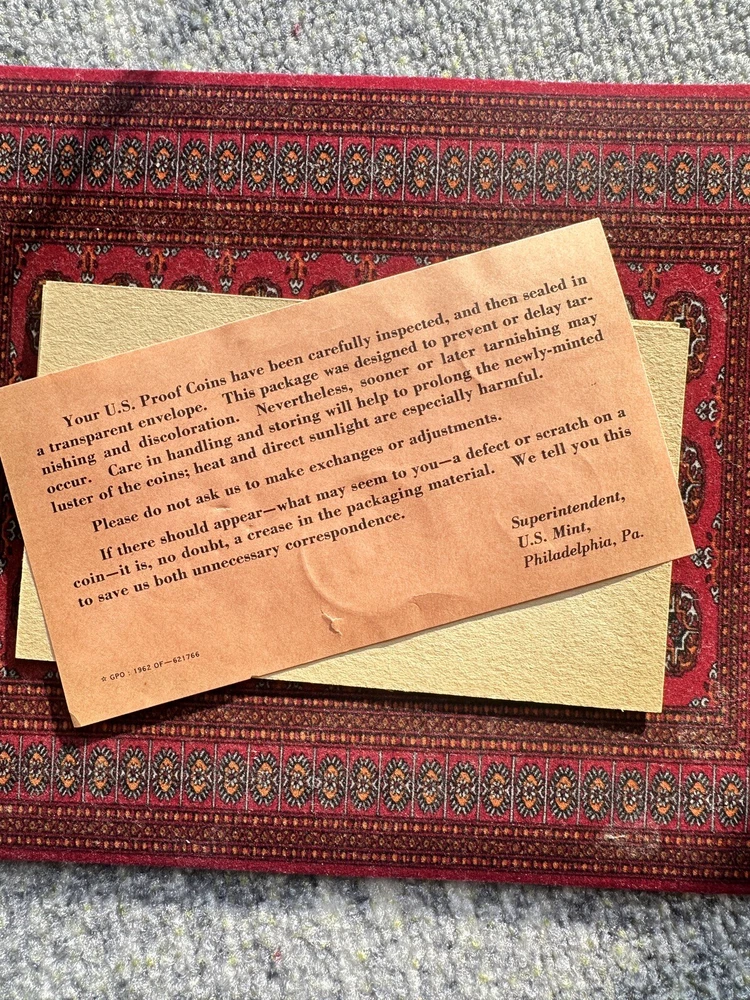 Your U.S. Proof Coins have been carefully inspected, and then sealed in
a transparent envelope. This package was designed to prevent or delay tar-
nishing and discoloration. Nevertheless, sooner or later tarnishing may
occur. Care in handling and storing will help to prolong the newly-minted
luster of the coins; heat and direct sunlight are especially harmful.
Please do not ask us to make exchanges or adjustments.
If there should appear—what may seem to you—a defect or scratch on a
coin—it is, no doubt, a crease in the packaging material. We tell you this
to save us both unnecessary correspondence.
Superintendent,
U.S. Mint,
Philadelphia, Pa.
☆ GPO : 1962 OF—621766